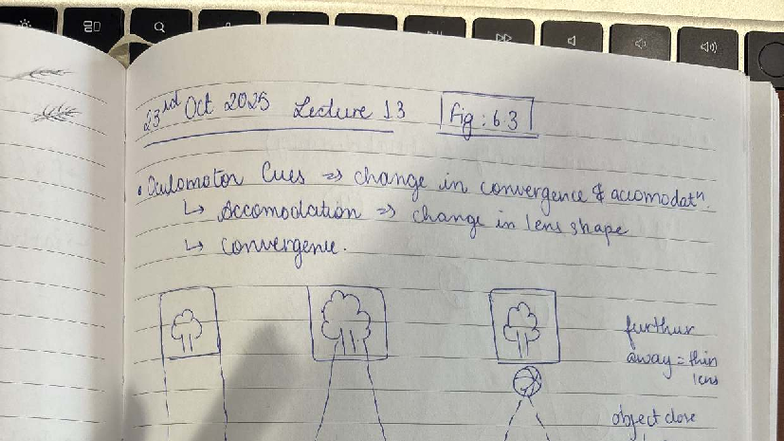 23rd Oct 2025 Lecture 13 Fig: 6.3
• Oculomotor Cues => change in convergence & accomodatⁿ.
↳ Accomodation => change in lens shape
↳ convergence.
furthur
away = thin
lens
object close